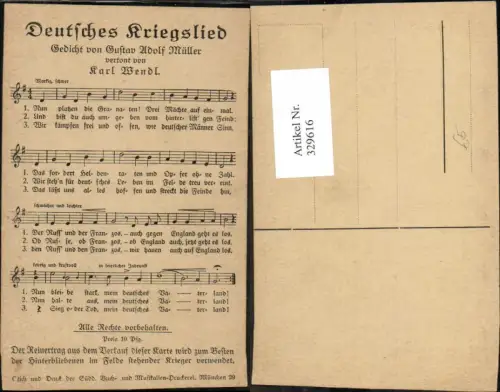 Deutsches Kriegslied
Gedicht von Gustav Adolf Müller
vertont von
Karl Wendl.
1. Nun platzen die Gra-na-ten! Drei Mächte auf ein-mal.
2. Und bist du auch um-ge-ben vom hinter-list'gen Feind:
3. Wir kämpfen frei und of-fen, wie deutscher Männer Sinn.
1. Das for-dert Hel-den-ta-ten und Op-fer oh-ne Zahl.
2. Wir steh'n für deut-sches Le-ben im Fel-de treu ver-eint.
3. Das läßt uns al-les hof-fen und streckt die Feinde hin,
1. Der Russ' und der Fran-zos,-auch gegen England geht es los.
2. Ob Russ-se, ob Fran-zos,-ob England auch, jetzt geht es los.
3. den Russ' und den Fran-zos,-wir hauen auch auf England los.
1. Nun blei-be stark, mein deutsches Va-ter-land!
2. Nun hal-te aus, mein deutsches Va-ter-land!
3. Sieg o-der Tod, mein deutsches Va-ter-land!
Alle Rechte vorbehalten.
Preis 10 Pfg.
Der Reinertrag aus dem Verkauf dieser Karte wird zum Besten
der Hinterbliebenen im Felde stehender Krieger verwendet.
Stich und Druck der Südd. Buch- und Musikalien-Druckerei, München 20
Artikel Nr.
329616